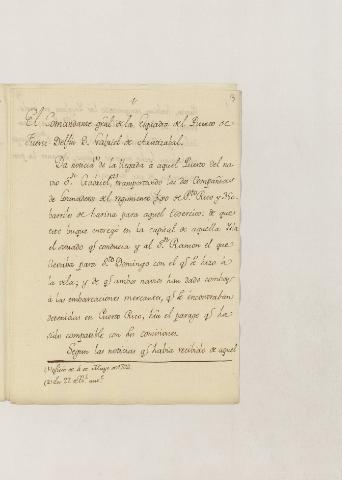 El Comandante gral de la Esquadra del Puerto de
Fuerte Delfin D. Gabriel de Aristizabal.
Da noticia de la llegada à aquel Puerto del na-
vio Sn. Gabriel transportando las dos Compañias
de Granaderos del regimiento fixo de Pto. Rico y
barriles de harina para aquel Exercito: de que
este buque entregó en la capital de aquella Ysla
el situado qe. conducia y al Sn. Ramon el que
llevaba para Sto. Domingo con el qe. se hizo à
la vela; y de qe. ambos navios han dado comboy
à las embarcaciones mercantes, qe. se encontraban
detenidas en Puerto Rico, hta el parage qe. ha
sido compatible con sus comisiones.
Segun las noticias qe. habia recibido de aquel
(1) Oficio de 4 de Mayo de 1795.
(2) de 22 de